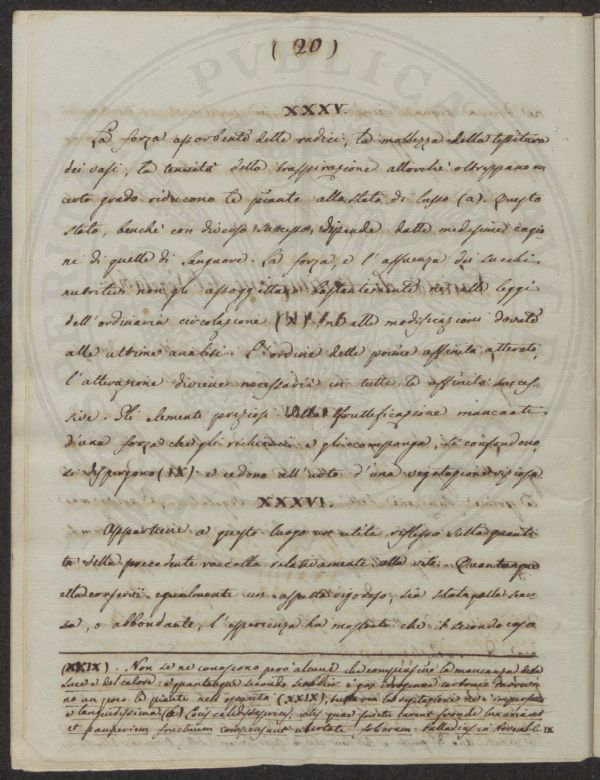 ( 20 )
XXXV.
La forza assorbente delle radici, la mollezza della tessitura
dei vasi, la tenuità della traspirazione allorchè oltrepassano un
certo grado riducono le piante allo stato di lusso (a). Questo
stato, benchè con diverso successo, dipende dalle medesime cagio-
ni di quelle di languore. La forza, e l'affluenza dei succhi
nutritivi non gli assoggettano bastantemente nè alle leggi
dell'ordinaria circolazione (X) nè alle modificazioni dovute
alle ultime analisi. L'ordine delle prime affinità alterato,
l'alterazione diviene necessaria in tutte le affinità succes-
sive. Gli elementi preziosi della fruttificazione mancanti
d'una forza che gli richiami e gli accompagna, si confondono,
si dispergono (IX) e cedono all'urto d'una vegetazione viziosa
XXXVI.
Appartiene a questo luogo un utile riflesso sulla quanti-
tà della precedente raccolta relativamente alla vite. Quantunque
ella conservi egualmente un aspetto vigoroso, sia stata quella scar-
sa, o abbondante, l'esperienza ha mostrato che il secondo caso
(XXIX). Non se ne conoscono però alcune che compensino la mancanza della
luce e del calore: e quantunque secondo il gas carbonico
no un poco le piante nell'oscurità (XXIX), la vegetazione ne è imperfetta
e languidissima (b) Locis calidissimis, vites quae fructu carent fronde luxuriant
et pauperiem fructuum compensant ubertate foliorum. Palladius in Novemb. L. IX